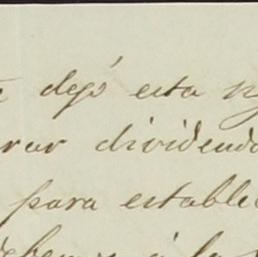 dejó esta
rar dividendo
para estable
deben a la